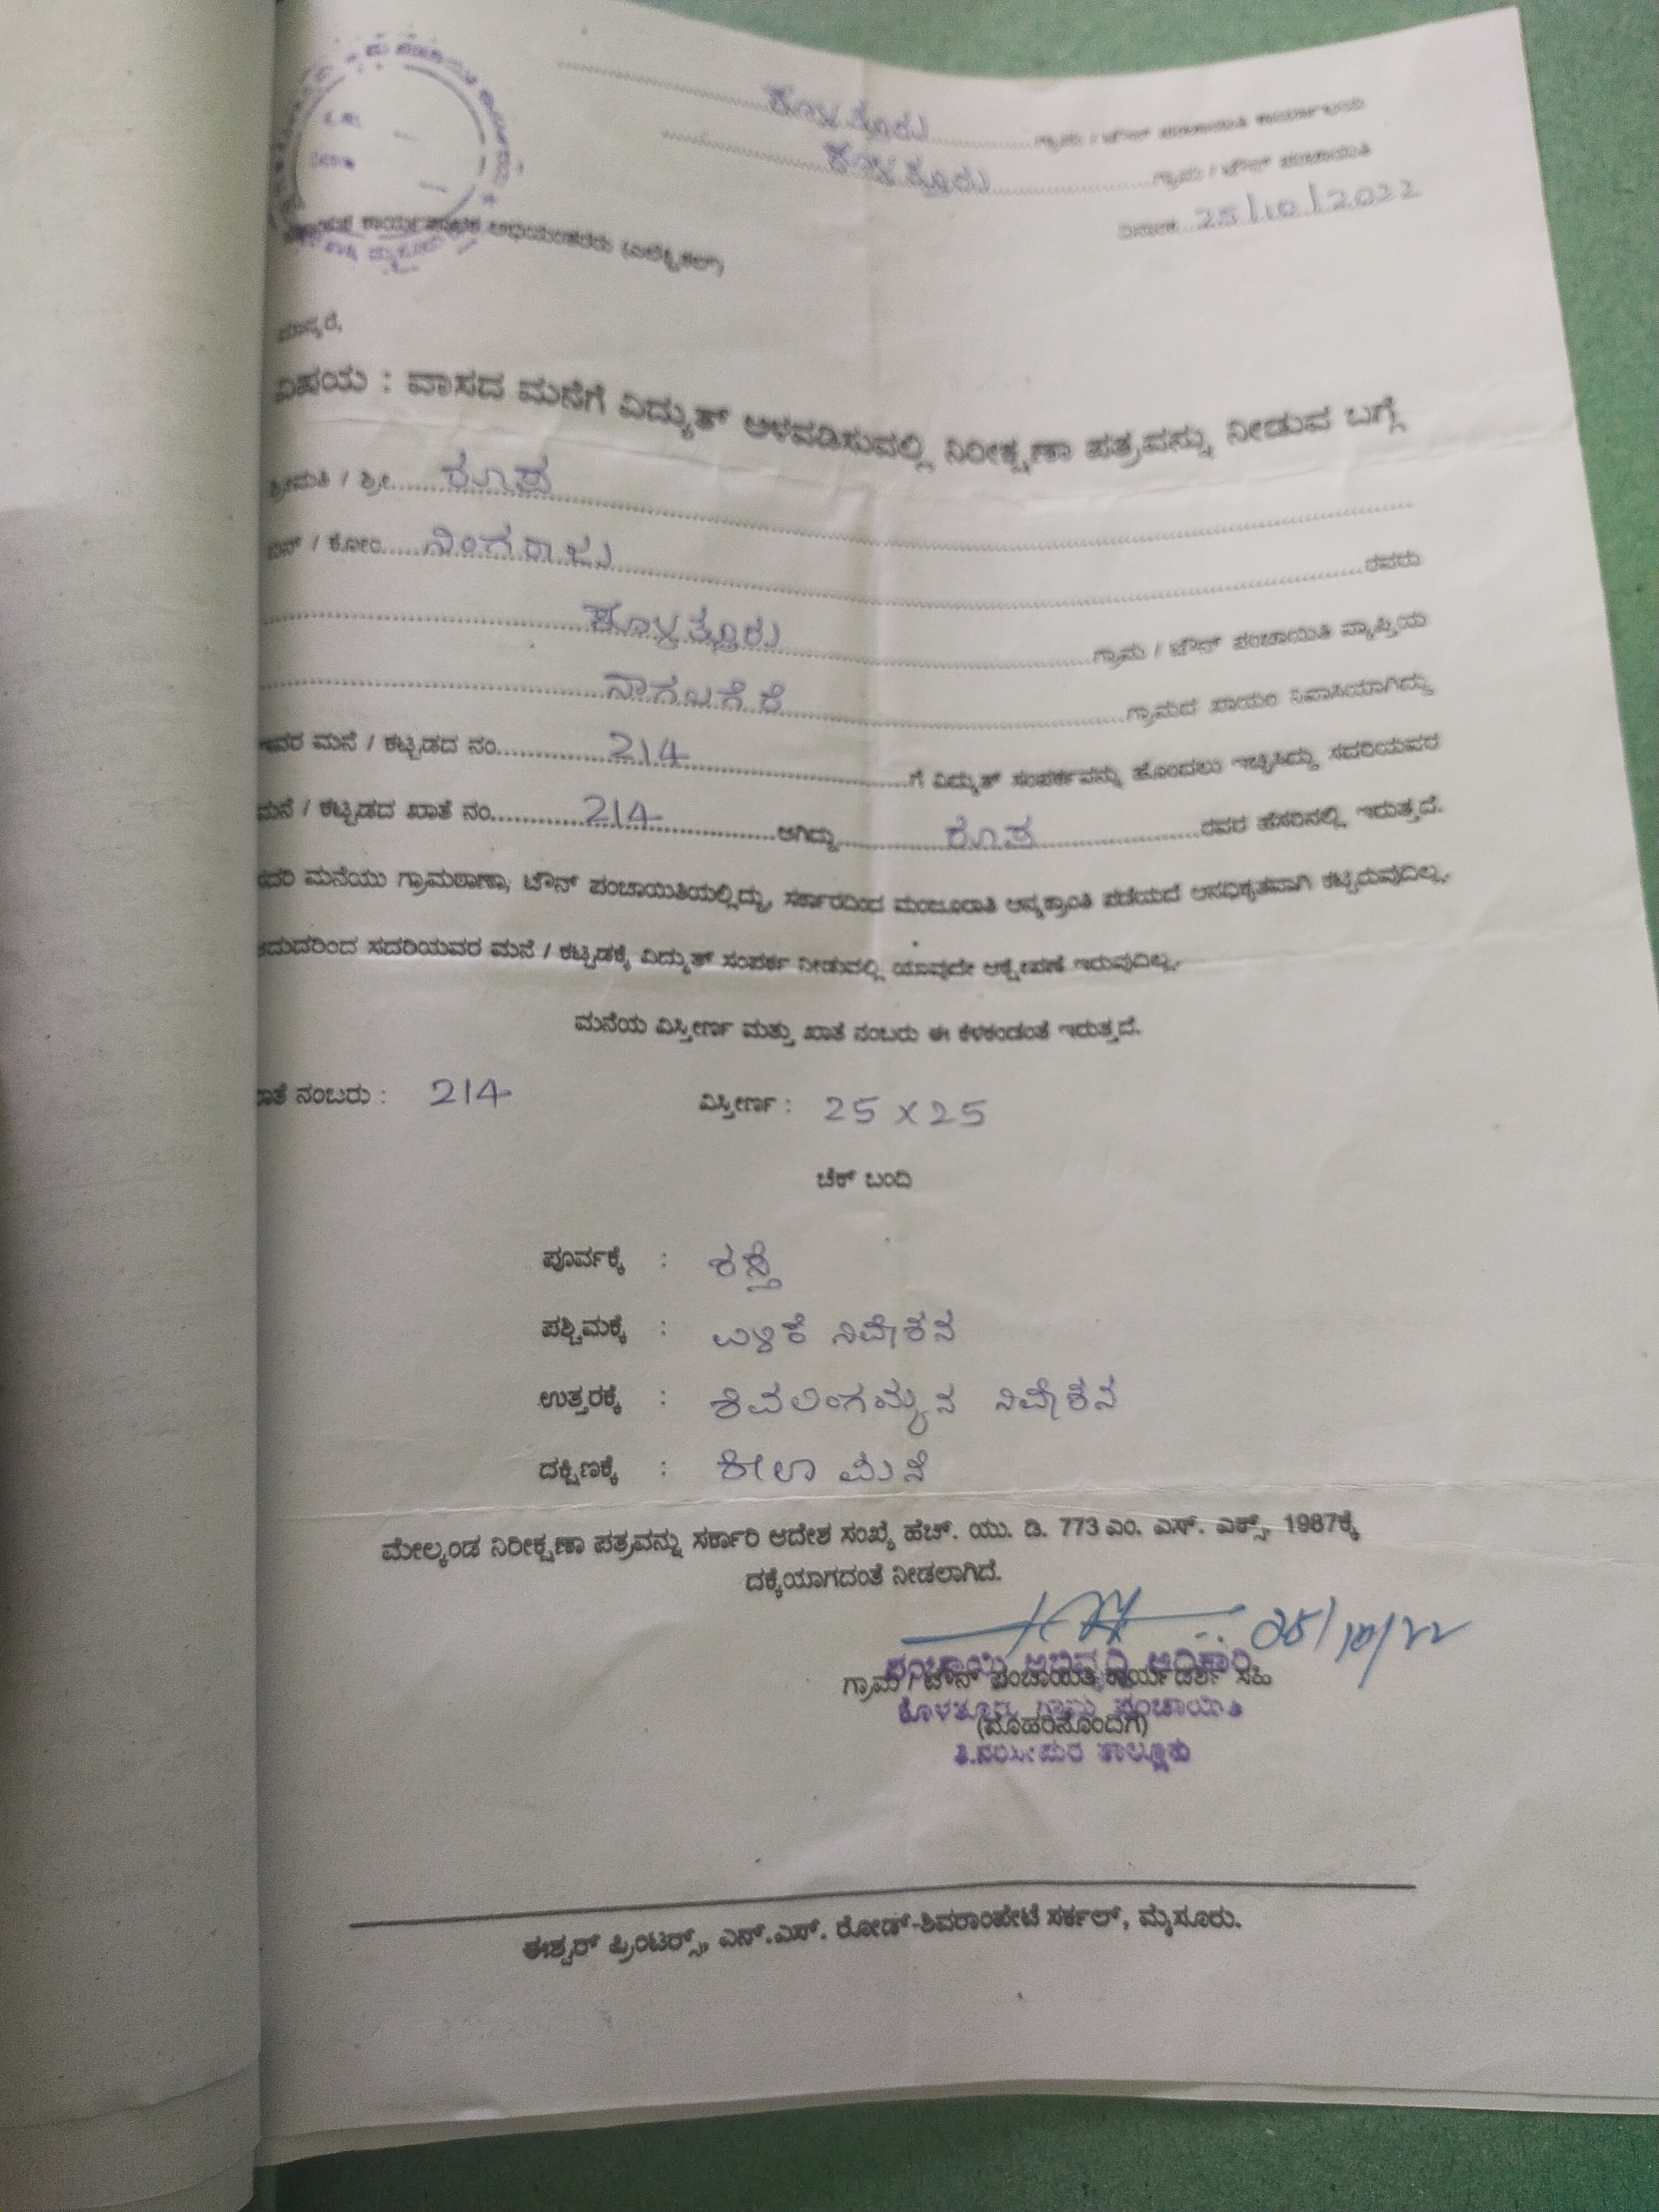 ಕೊಳತ್ತೂರು ಗ್ರಾಮ / ಟೌನ್ ಪಂಚಾಯಿತಿ ಕಾರ್ಯಾಲಯ
ಕೊಳತ್ತೂರು ಗ್ರಾಮ / ಟೌನ್ ಪಂಚಾಯಿತಿ
ದಿನಾಂಕ 25/10/2022
ಕಾರ್ಯಪಾಲಕ ಅಭಿಯಂತರರು (ಎಲೆಕ್ಟ್ರಿಕಲ್)
ಮಾನ್ಯರೆ,
ವಿಷಯ : ವಾಸದ ಮನೆಗೆ ವಿದ್ಯುತ್ ಅಳವಡಿಸುವಲ್ಲಿ ನಿರೀಕ್ಷಣಾ ಪತ್ರವನ್ನು ನೀಡುವ ಬಗ್ಗೆ
ಶ್ರೀಮತಿ / ಶ್ರೀ ರೂಪ
ಬಿನ್ / ಕೋಂ ನಿಂಗರಾಜು ರವರು
ಕೊಳತ್ತೂರು ಗ್ರಾಮ / ಟೌನ್ ಪಂಚಾಯಿತಿ ವ್ಯಾಪ್ತಿಯ
ಗ್ರಾಮದ ಖಾಯಂ ನಿವಾಸಿಯಾಗಿದ್ದು
ಇವರ ಮನೆ / ಕಟ್ಟಡದ ನಂ 214 ಗೆ ವಿದ್ಯುತ್ ಸಂಪರ್ಕವನ್ನು ಹೊಂದಲು ಇಚ್ಛಿಸಿದ್ದು ಸದರಿಯವರ
ಮನೆ / ಕಟ್ಟಡದ ಖಾತೆ ನಂ 214 ಆಗಿದ್ದು ರೂಪ ರವರ ಹೆಸರಿನಲ್ಲಿ ಇರುತ್ತದೆ.
ಸದರಿ ಮನೆಯು ಗ್ರಾಮಠಾಣಾ, ಟೌನ್ ಪಂಚಾಯಿತಿಯಲ್ಲಿದ್ದು, ಸರ್ಕಾರದಿಂದ ಮಂಜೂರಾತಿ ಅನ್ಯಕ್ರಾಂತಿ ಪಡೆಯದೆ ಅನಧಿಕೃತವಾಗಿ ಕಟ್ಟಿರುವುದಿಲ್ಲ.
ಆದುದರಿಂದ ಸದರಿಯವರ ಮನೆ / ಕಟ್ಟಡಕ್ಕೆ ವಿದ್ಯುತ್ ಸಂಪರ್ಕ ನೀಡುವಲ್ಲಿ ಯಾವುದೇ ಆಕ್ಷೇಪಣೆ ಇರುವುದಿಲ್ಲ.
ಮನೆಯ ವಿಸ್ತೀರ್ಣ ಮತ್ತು ಖಾತೆ ನಂಬರು ಈ ಕೆಳಕಂಡಂತೆ ಇರುತ್ತದೆ.
ಖಾತೆ ನಂಬರು : 214 ವಿಸ್ತೀರ್ಣ : 25 x 25
ಚೆಕ್ ಬಂದಿ
ಪೂರ್ವಕ್ಕೆ : ರಸ್ತೆ
ಪಶ್ಚಿಮಕ್ಕೆ : ನಿವೇಶನ
ಉತ್ತರಕ್ಕೆ : ಶಿವಲಿಂಗಮ್ಮನ ನಿವೇಶನ
ದಕ್ಷಿಣಕ್ಕೆ : ಶೀಲಾ ಮನೆ
ಮೇಲ್ಕಂಡ ನಿರೀಕ್ಷಣಾ ಪತ್ರವನ್ನು ಸರ್ಕಾರಿ ಆದೇಶ ಸಂಖ್ಯೆ ಹೆಚ್. ಯು. ಡಿ. 773 ಎಂ. ಎಸ್. ಎಕ್ಸ್. 1987ಕ್ಕೆ
ದಕ್ಕೆಯಾಗದಂತೆ ನೀಡಲಾಗಿದೆ.
25/10/22
ಪಂಚಾಯಿತಿ ಅಭಿವೃದ್ಧಿ ಅಧಿಕಾರಿ
ಗ್ರಾಮ / ಟೌನ್ ಪಂಚಾಯಿತಿ ಕಾರ್ಯದರ್ಶಿ ಸಹಿ
ಕೊಳತ್ತೂರು ಗ್ರಾಮ ಪಂಚಾಯಿತಿ
(ಮೊಹರಿನೊಂದಿಗೆ)
ತಿ.ನರಸೀಪುರ ತಾಲ್ಲೂಕು
ಈಶ್ವರ್ ಪ್ರಿಂಟರ್ಸ್, ಎನ್.ಎಸ್. ರೋಡ್-ಶಿವರಾಂಪೇಟೆ ಸರ್ಕಲ್, ಮೈಸೂರು.